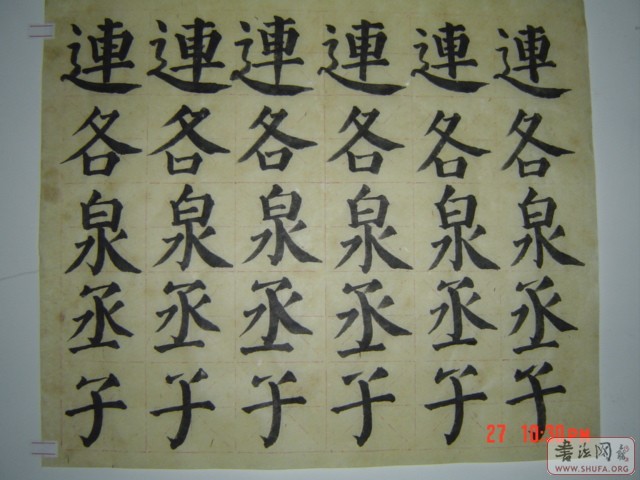 連連連連連連
各各各各各各
泉泉泉泉泉泉
丞丞丞丞丞丞
子子子子子子
27
书法网
WWW.SHUFA.ORG